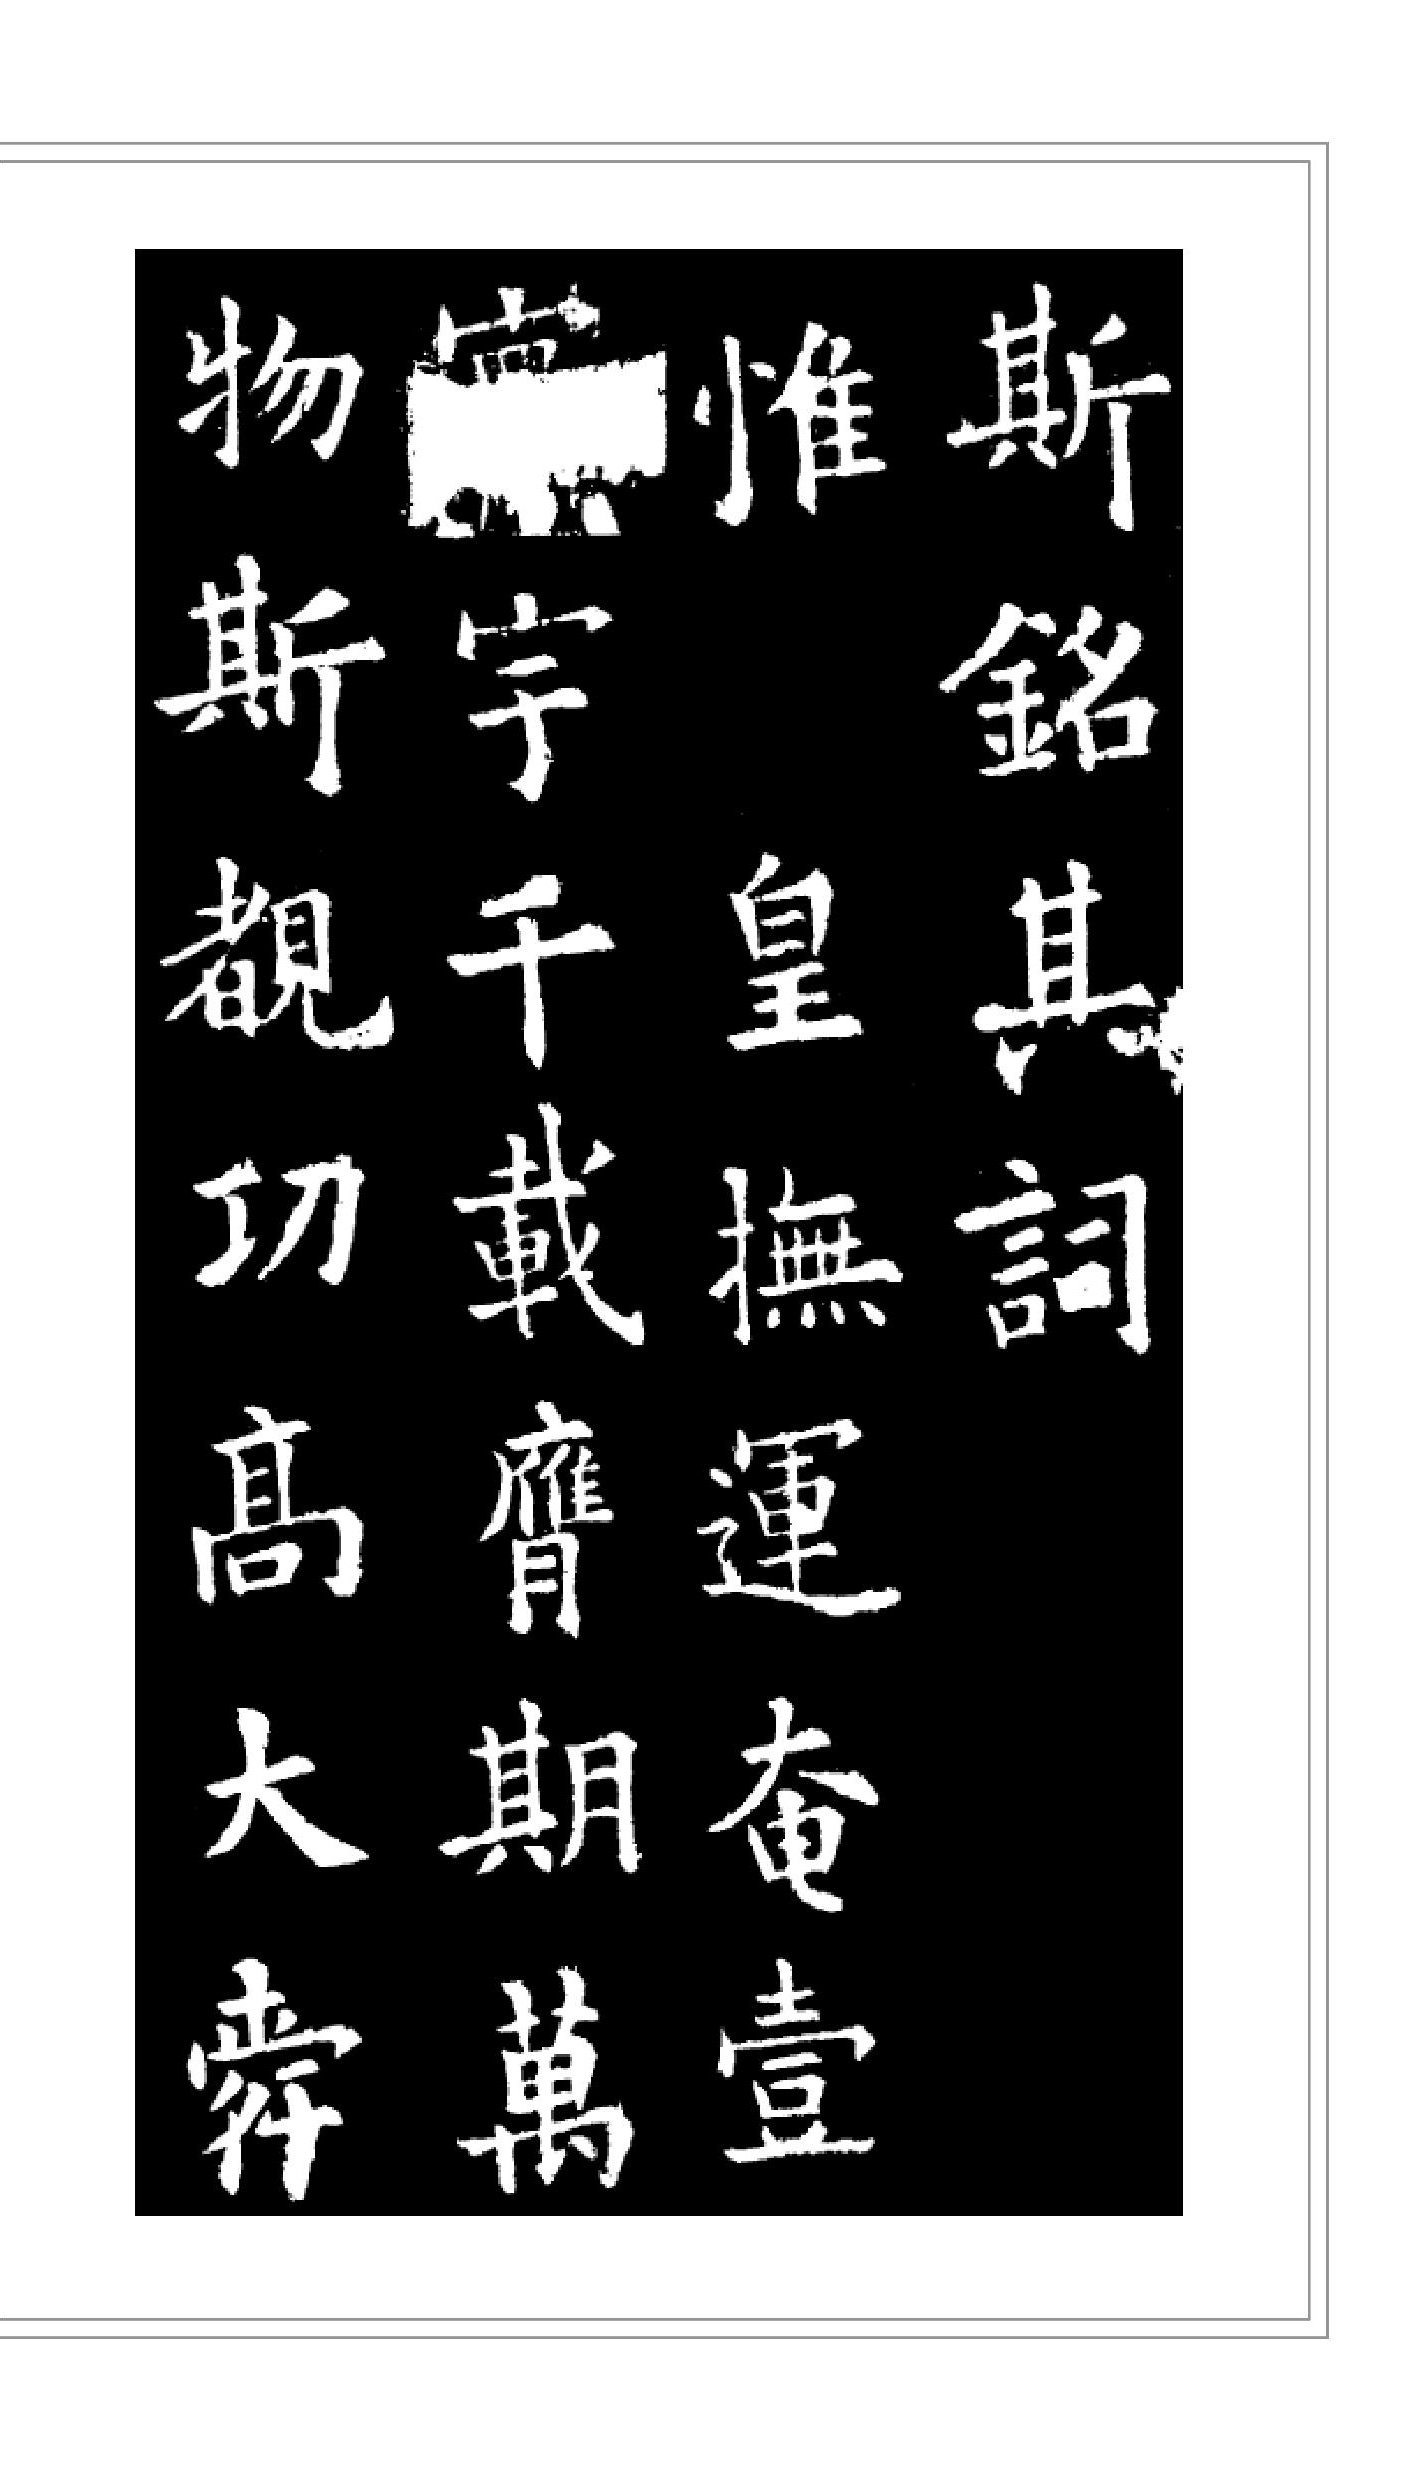 斯銘其詞
惟皇撫運奄壹
宇千載膺期萬
物斯覩功高大舜